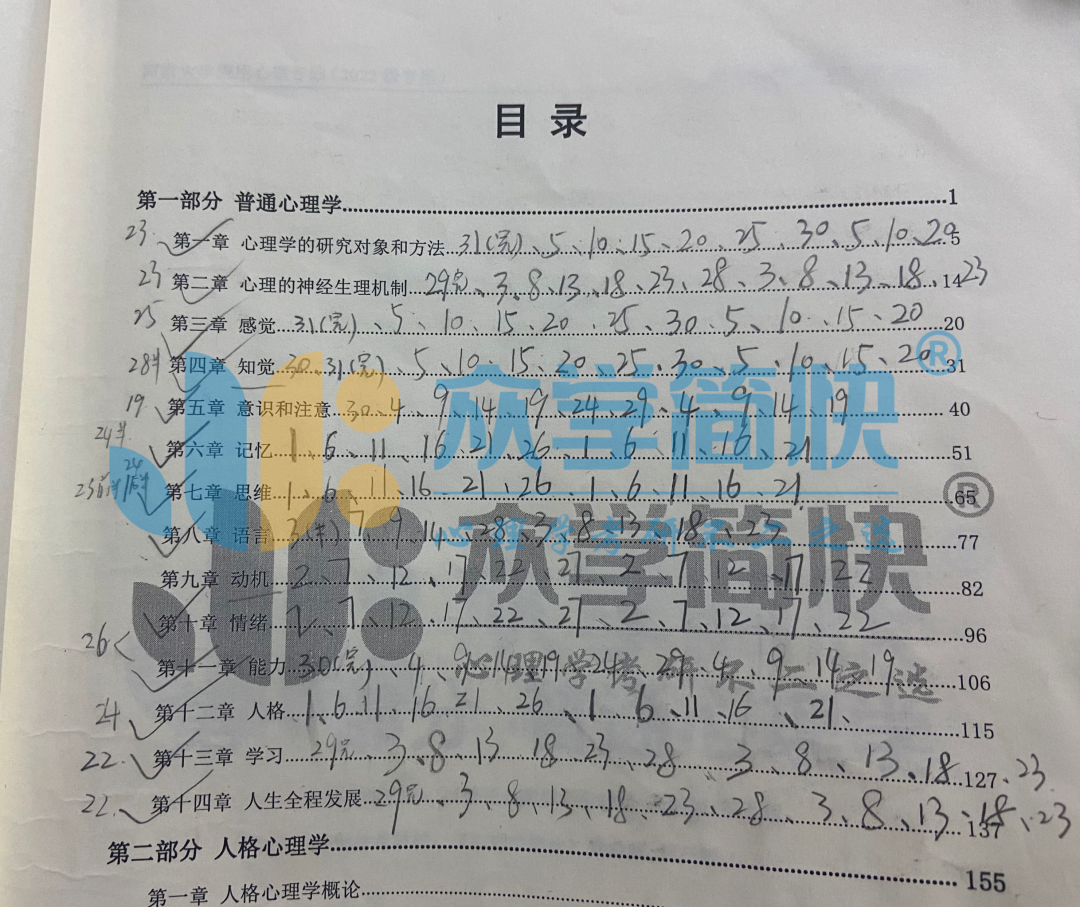 目 录
第一部分 普通心理学 1
23 第一章 心理学的研究对象和方法 31(完)、5、10、15、20、25、30、5、10、20 5
23 第二章 心理的神经生理机制 29完、3、8、13、18、23、28、3、8、13、18、14 23
25 第三章 感觉 31(完)、5、10、15、20、25、30、5、10、15、20 20
28 第四章 知觉 30、31(完)、5、10、15、20、25、30、5、10、15、20 31
19 第五章 意识和注意 30、4、9、14、19、24、29、4、9、14、19 40
24 第六章 记忆 1、6、11、16、21、26、1、6、11、16、21 51
第七章 思维 1、6、11、16、21、26、1、6、11、16、21 65
第八章 语言 3 7、9、14、28、3、8、13、18、23 77
第九章 动机 2、7、12、17、22、27、2、7、12、17、22 82
第十章 情绪 2、7、12、17、22、27、2、7、12、17、22 96
26 第十一章 能力 30(完)、4、9、14、19、24、29、4、9、14、19 106
24 第十二章 人格 1、6、11、16、21、26、1、6、11、16、21、 115
22 第十三章 学习 29完、3、8、13、18、23、28、3、8、13、18 127、23
22 第十四章 人生全程发展 29完、3、8、13、18、23、28、3、8、13、18、23 137
第二部分 人格心理学 155
第一章 人格心理学概论
众学简快®
心理学考研不二之选
众学简快®
心理学考研不二之选